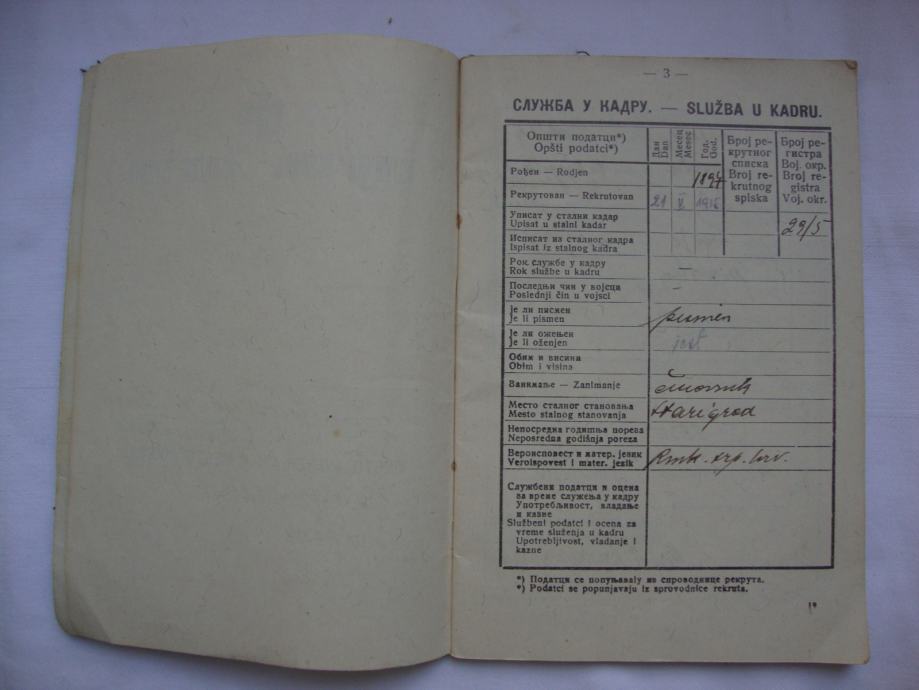 — 3 —
СЛУЖБА У КАДРУ. — SLUŽBA U KADRU.
Општи податци*)
Opšti podatci*)
Дан
Dan
Месец
Mesec
Год.
God.
Број ре-
крутног
списка
Broj re-
krutnog
spiska
Број ре-
гистра
Вој. окр.
Broj re-
gistra
Voj. okr.
Рођен — Rodjen
Рекрутован — Rekrutovan
21 V
Упис​ат у стални кадар
Upisat u stalni kadar
29/5
Исписат из сталног кадра
Ispisat iz stalnog kadra
Рок службе у кадру
Rok službe u kadru
—
Последњи чин у војсци
Poslednji čin u vojsci
—
Је ли писмен
Je li pismen
pismen
Је ли ожењен
Je li oženjen
jest
Обим и висина
Obim i visina
Занимање — Zanimanje
činovnik
Место сталног становања
Mesto stalnog stanovanja
Starigrad
Непосредна годишња пореза
Neposredna godišnja poreza
Вероисповест и матер. језик
Veroispovest i mater. jezik
Rmk. srp. hrv.
Службени податци и оцена
за време служења у кадру
Употребљивост, владање
и казне
Službeni podatci i ocena za
vreme služenja u kadru
Upotrebljivost, vladanje i
kazne
*) Податци се попуњавају из спроводнице рекрута.
*) Podatci se popunjavaju iz sprovodnice rekruta.
1*